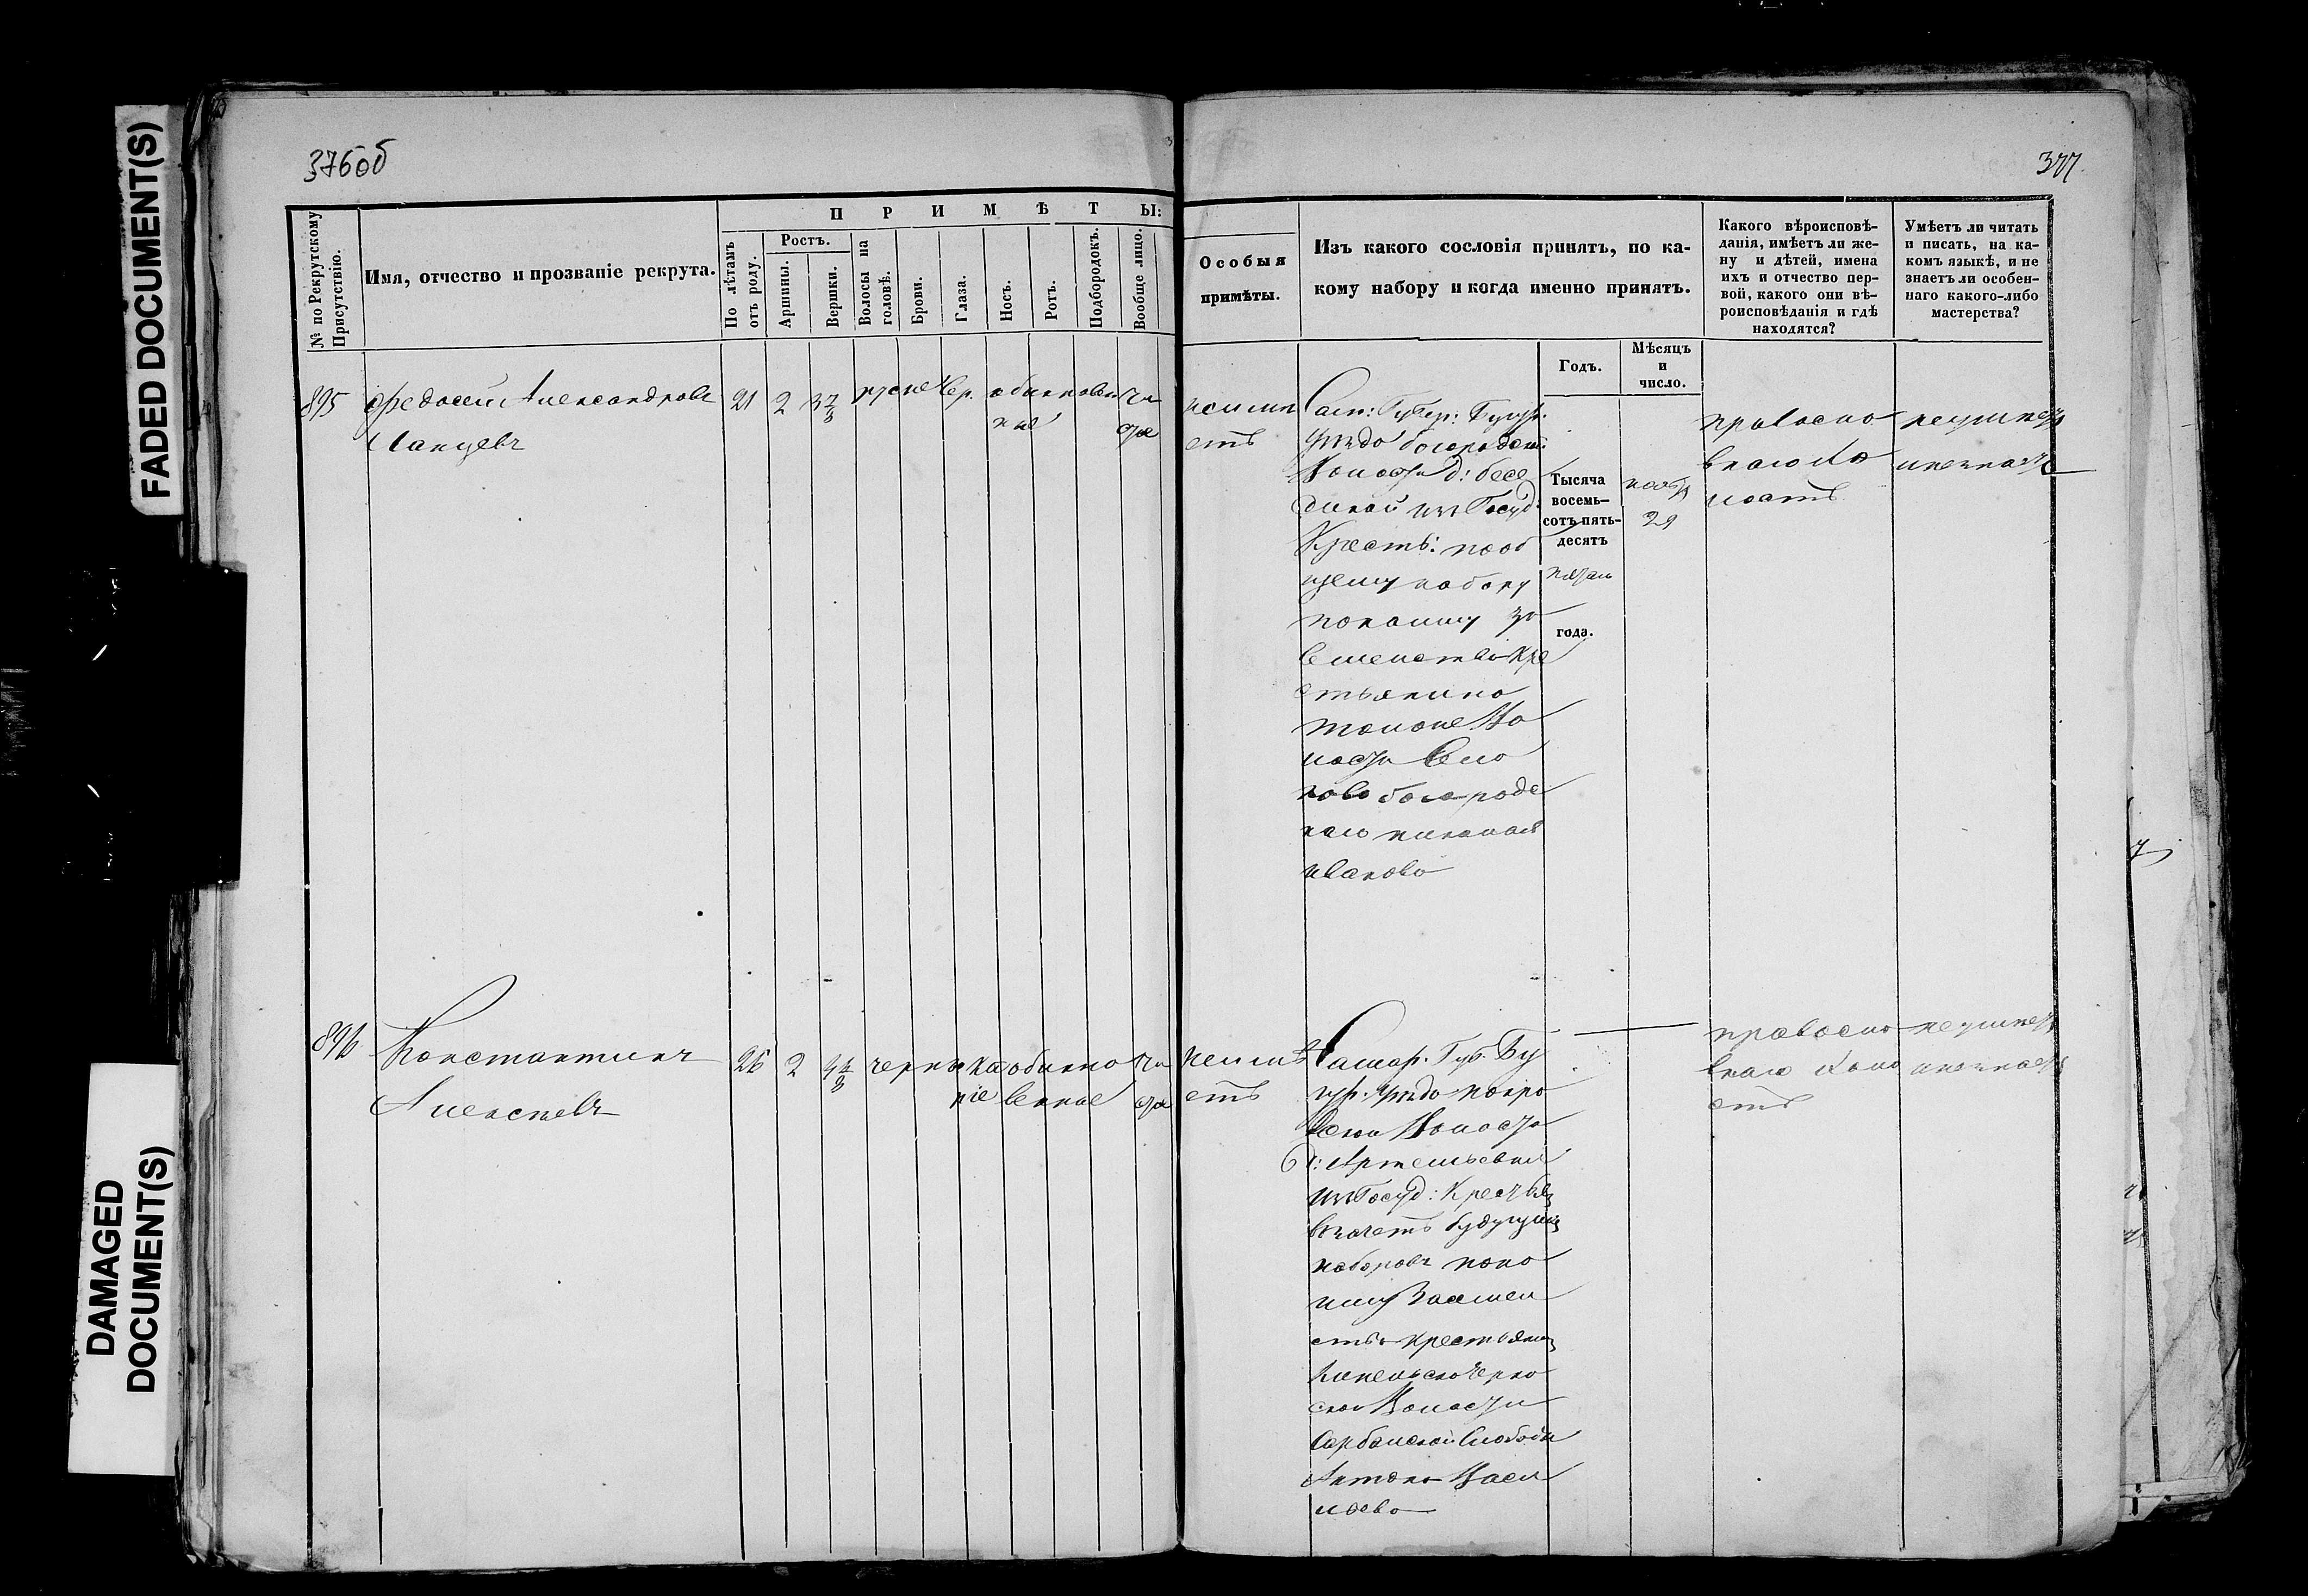 FADED DOCUMENT(S)
DAMAGED
DOCUMENT(S)
376об
377
П Р И М Ѣ Т Ы:
№ по Рекрутскому
Присутствію.
Имя, отчество и прозваніе рекрута.
По лѣтамъ
отъ роду.
Ростъ.
Аршины.
Вершки.
Волосы на
головѣ.
Брови.
Глаза.
Носъ.
Ротъ.
Подбородокъ.
Вообще лицо.
Особыя
примѣты.
Изъ какого сословія принятъ, по ка-
кому набору и когда именно принятъ.
Годъ.
Мѣсяцъ
и
число.
Какого вѣроисповѣ-
данія, имѣетъ ли же-
ну и дѣтей, имена
ихъ и отчество пер-
вой, какого они вѣ-
роисповѣданія и гдѣ
находятся?
Умѣетъ ли читать
и писать, на ка-
комъ языкѣ, и не
знаетъ ли особен-
наго какого-либо
мастерства?
895
Федосей Александровъ
21
2
3 7/8
русые
сер.
обыкновен
ные
чи
стое
неимѣ
етъ
Сам: Губер: Бугур:
уѣзда богородск:
Волости д:
изъ Госуд:
Кресть: пооб
щему набору
понайму за
семейство кре
стьянина
тойже Во
лости Села
ново богородс
каго
иванова
Тысяча
восемь-
сотъ пять-
десятъ
пятаго
года.
нояб
29
правосла
внаго хо
лостъ
неумѣетъ
инезнаетъ
896
Константинъ
Алексѣевъ
26
2
4 4/8
черны
ка
ріе
обыкно
венные
чи
стое
неимѣ
етъ
Самар. Губ. Бу
гур. уѣзда покро
вской Волости
д: Артемьевки
изъ Госуд: Крестьянъ
взачетъ будущихъ
наборовъ пона
йму Засемей
ство крестьянина
Кинельско Черка
ской Волости
Сарбайской Слободы
Антона Васи
льева
правосла
внаго холо
стъ
неумѣетъ
инезнаетъ